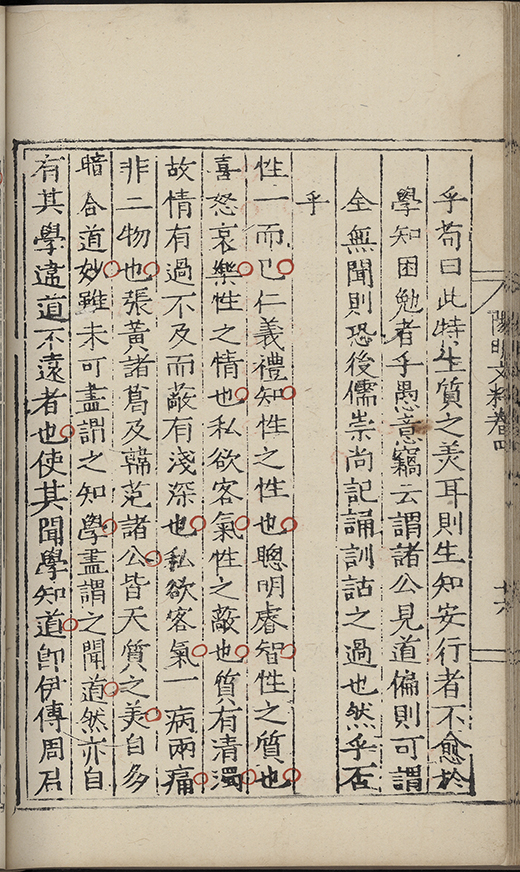 陽明文粹卷四
十六
乎苟曰此特生質之美耳則生知安行者不愈於
學知困勉者乎愚意竊云謂諸公見道偏則可謂
全無聞則恐後儒崇尚記誦訓詁之過也然乎否
乎
性一而已仁義禮知性之性也聰明睿智性之質也
喜怒哀樂性之情也私欲客氣性之蔽也質有清濁
故情有過不及而蔽有淺深也私欲客氣一病兩痛
非二物也張黃諸葛及韓范諸公皆天質之美自多
暗合道妙雖未可盡謂之知學盡謂之聞道然亦自
有其學違道不遠者也使其聞學知道卽伊傅周召